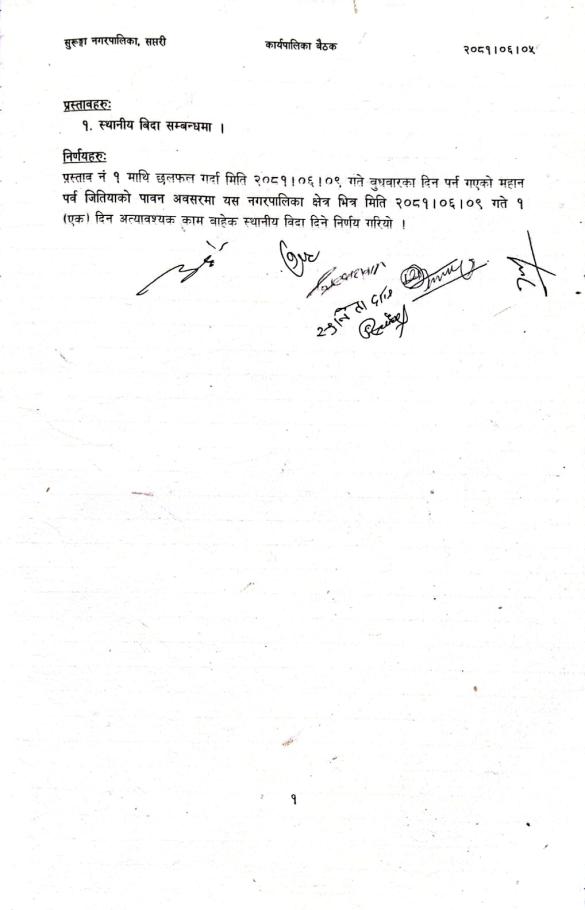 सुरूङ्गा नगरपालिका, सप्तरी कार्यपालिका बैठक २०८१।०६।०५
प्रस्तावहरुः
१. स्थानीय बिदा सम्बन्धमा ।
निर्णयहरुः
प्रस्ताव नं १ माथि छलफल गर्दा मिति २०८१।०६।०९ गते बुधवारका दिन पर्न गएको महान
पर्व जितियाको पावन अवसरमा यस नगरपालिका क्षेत्र भित्र मिति २०८१।०६।०९ गते १
(एक) दिन अत्यावश्यक काम बाहेक स्थानीय विदा दिने निर्णय गरियो ।
१